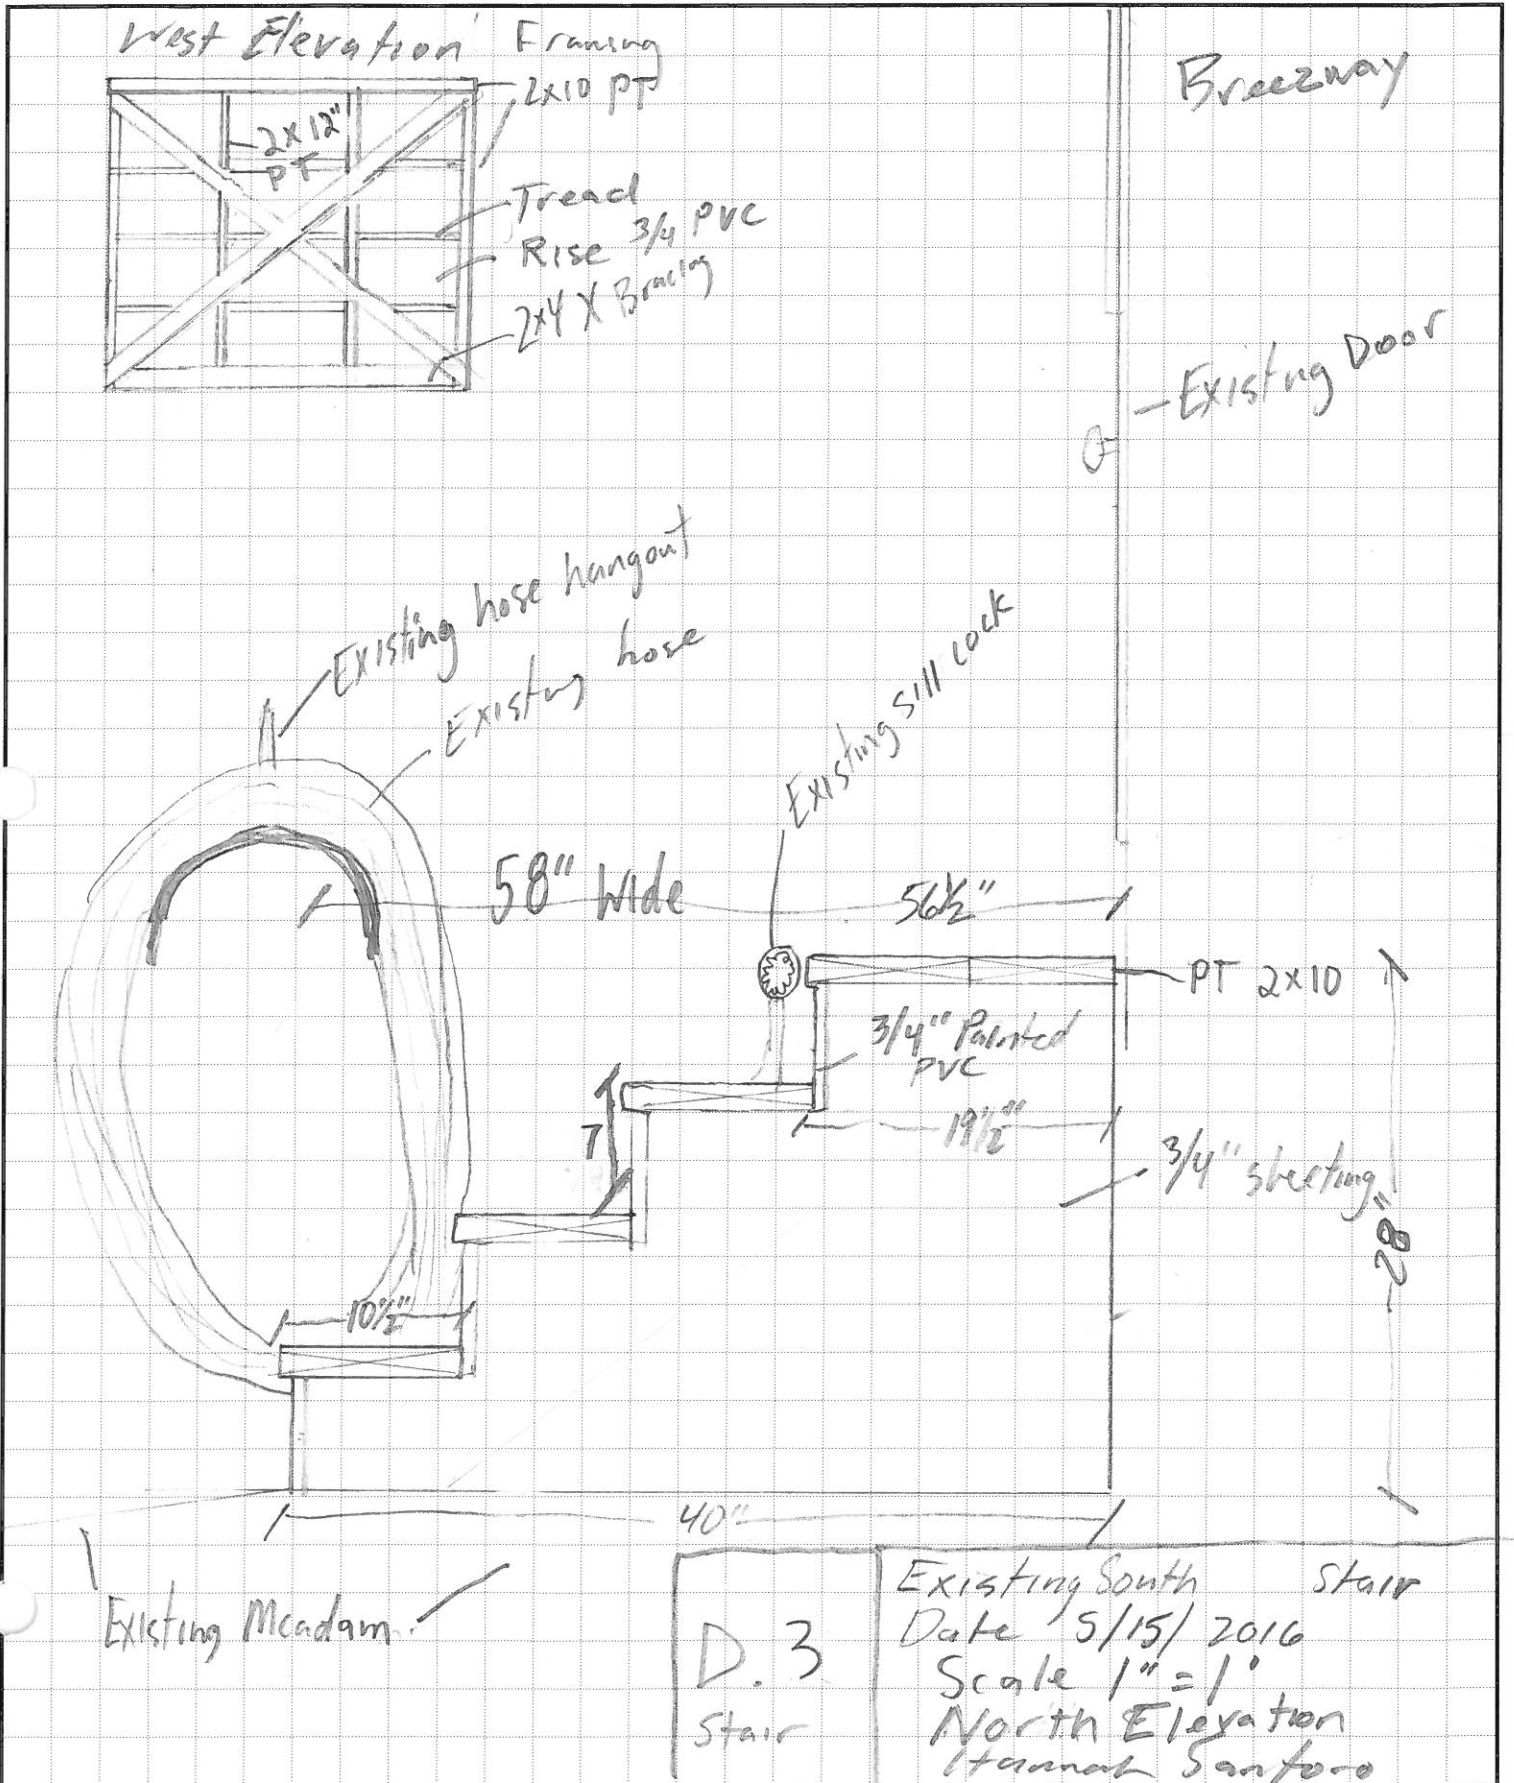 West Elevation Framing
2x10 PT
2x12"
PT
Tread
Rise 3/4 PVC
2x4 X Bracing
Breezway
Existing Door
Existing hose hangout
Existing hose
Existing sill cock
58" Wide
56½"
PT 2x10
3/4" Painted
PVC
7
19½"
3/4" sheeting
28"
10½"
40"
Existing Mcadam
D.3
Stair
Existing South Stair
Date 5/15/2016
Scale 1" = 1'
North Elevation
Hannah Sanford